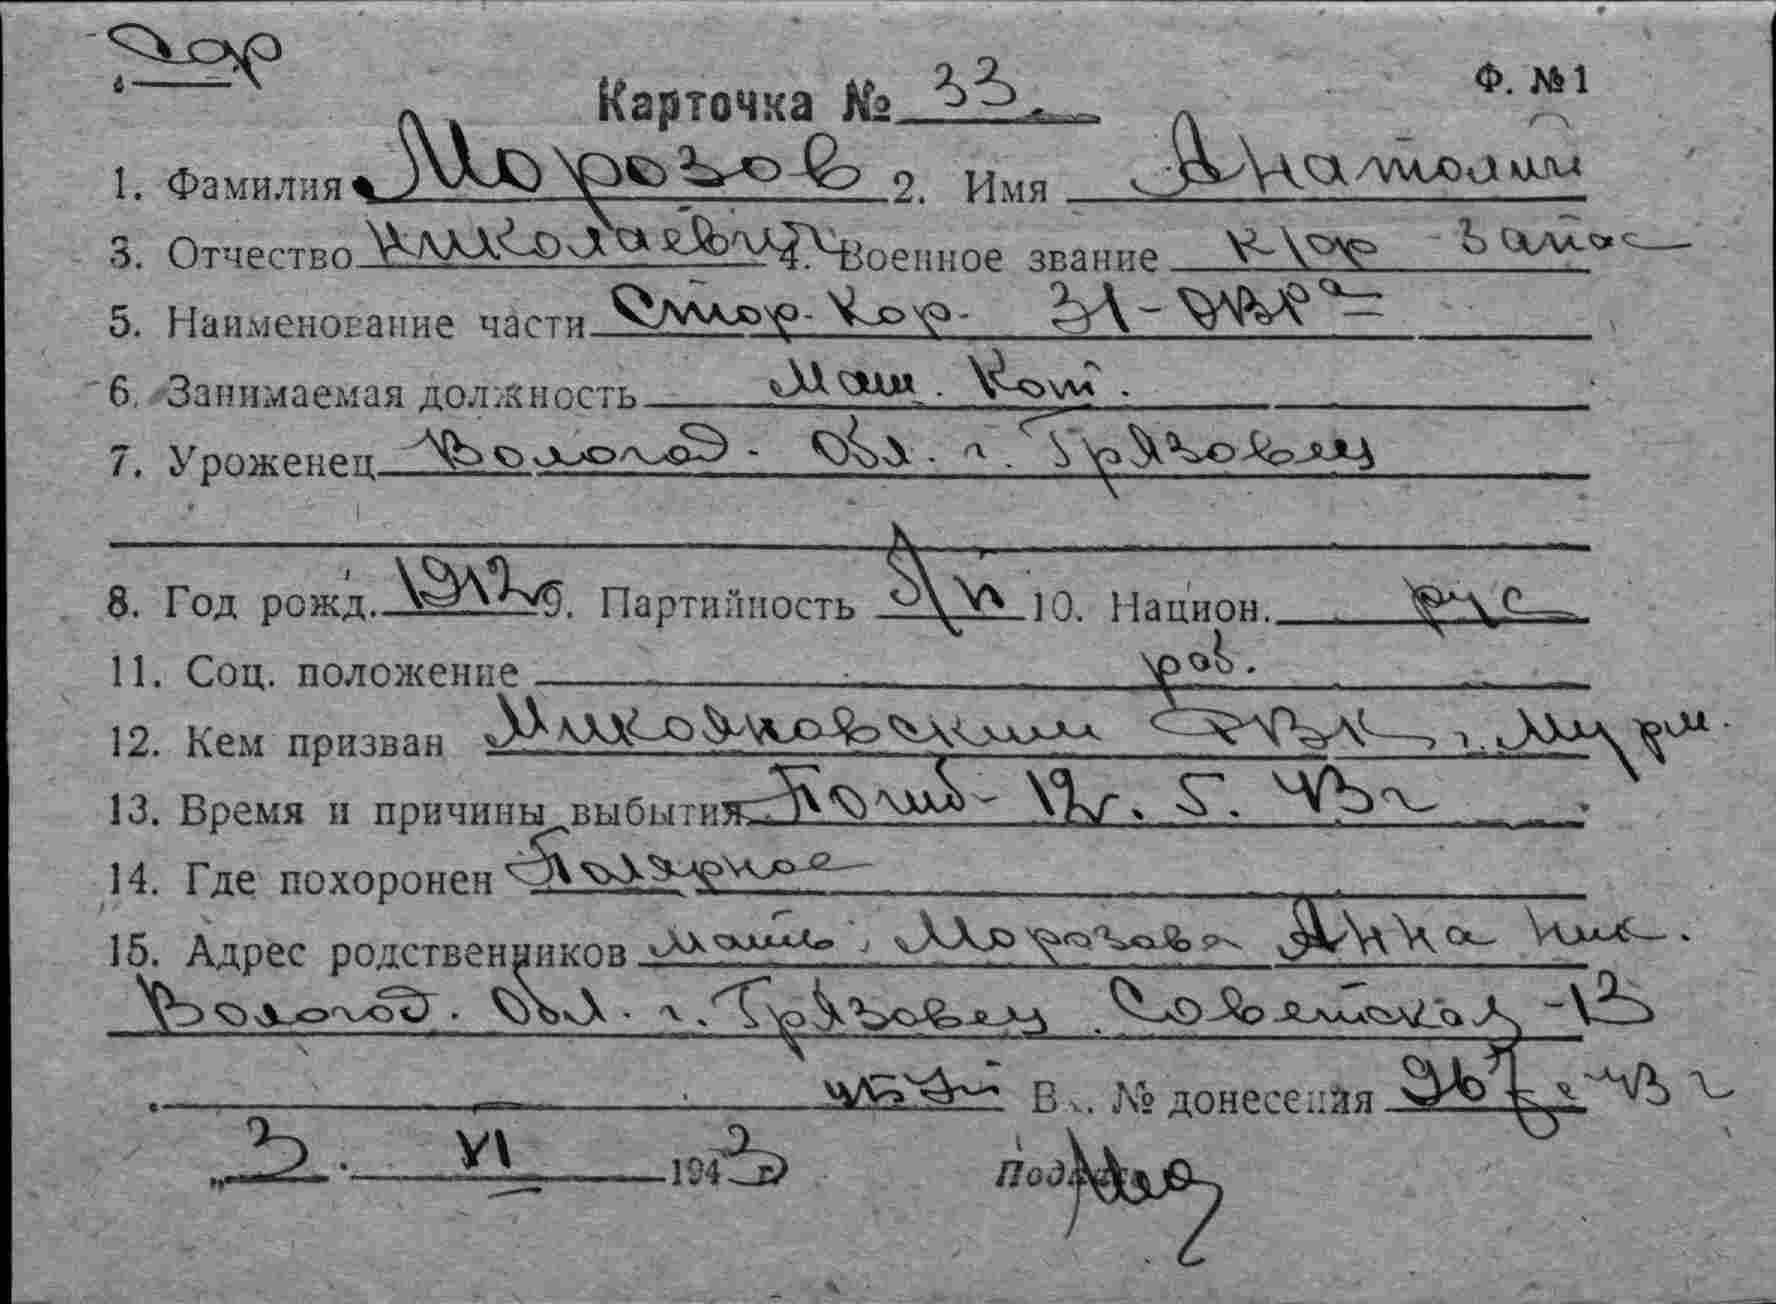 Карточка № 33. Ф. №1
1. Фамилия Морозов 2. Имя Анатолий
3. Отчество Николаевич 4. Военное звание к-нор запас
5. Наименование части Стор. Кор.
6. Занимаемая должность Маш. Кот.
7. Уроженец Вологод. Обл. г. Грязовец
8. Год рожд. 1912 9. Партийность б/п 10. Национ. рус
11. Соц. положение раб.
12. Кем призван Микояновским ОРВК, г. Мурм.
13. Время и причины выбытия Погиб - 12/. 5. 43г
14. Где похоронен Полярное
15. Адрес родственников мать: Морозова Анна Ник.
Вологод. Обл. г. Грязовец. Советская - 13
Вх. № донесения 43 г
„3. VI 1943 г.
Подпись